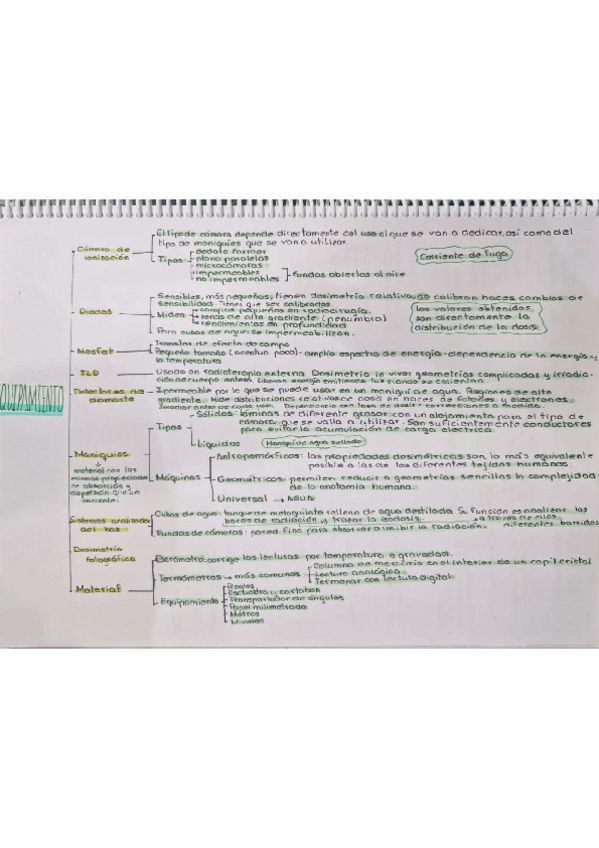 EQUIPAMIENTO
Cámara de
ionización
El tipo de cámara depende directamente del uso al que se van a dedicar, así como del
tipo de maniquíes que se van a utilizar.
Tipos
dedal o farmer
plano paralelas
microcámaras
impermeables
no impermeables
fundas abiertas al aire.
Corriente de fuga
Diodos
Sensibles, más pequeños, tienen dosimetría relativa, se calibran haces cambios de
sensibilidad. Tienen que ser calibrados.
Miden
campos pequeños en radiocirugía.
zonas de alto gradiente (penumbra)
rendimientos en profundidad
Para cubas de agua: se impermeabilizan.
los valores obtenidos
son directamente la
distribución de la dosis.
Mosfet
Transitor de efecto de campo
Pequeño tamaño (atenúan poco) - amplio espectro de energía - dependencia de la energía y
la temperatura
TLD
Usado en radioterapia externa. Dosimetría in vivo, geometrías complicadas y irradia-
ción de cuerpo entero. Liberan energía emitiendo luz cuando se calientan.
Detectores de
diamante
Impermeable por lo que se puede usar en un maniquí de agua. Regiones de alto
gradiente. Mide distribuciones relativas de dosis en haces de fotones y electrones.
Irradiar antes de cada uso. Dependencia con tasa de dosis: correcciones a medida.
Maniquíes
material con las
mismas propiedades
de absorción y
dispersión que un
paciente.
Tipos
Sólidos: láminas de diferente grosor con un alojamiento para el tipo de
cámara que se valla a utilizar. Son suficientemente conductores
para evitar la acumulación de carga eléctrica.
Líquidos
Maniquí de agua sellado
Máquinas
Antropomóficos: las propiedades dosimétricas son lo más equivalente
posible a las de los diferentes tejidos humanos.
Geométricos: permiten reducir a geometrías sencillas la complejidad
de la anatomía humana.
Universal → AGUA
Sistemas analizador
del haz
Cubas de agua: tanque de metaquilato relleno de agua destilada. Su función es analizar los
haces de radiación y trazar la isodosis. a través de ellos
diferentes barridos
Fundas de cámaras: pared fina para absorber a recibir la radiación.
Dosimetría
fotográfica
Material
Barómetro: corrige las lecturas por temperatura o gravedad.
Termómetros → más comunes
Columna de mercurio en el interior de un capilar cristal
Lectura analógica.
Termopar con lectura digital.
Equipamiento
Reglas
Escuadra y cartabón
Transportador de ángulos
Papel milimetrado
Metros
Niveles